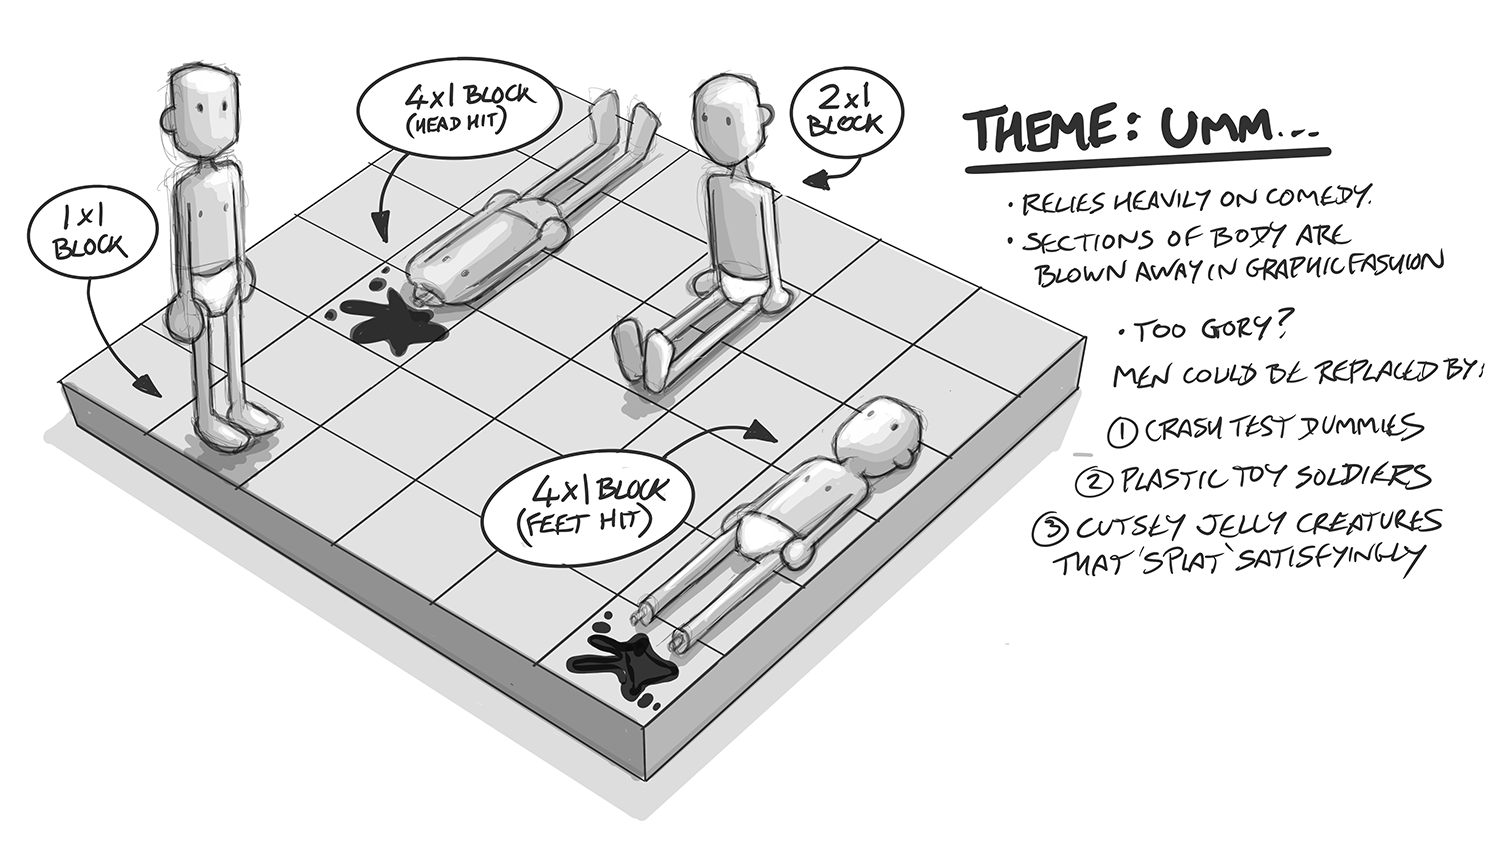 4x1 BLOCK
(HEAD HIT)
2x1
BLOCK
1x1
BLOCK
4x1 BLOCK
(FEET HIT)
THEME: UMM...
• RELIES HEAVILY ON COMEDY.
• SECTIONS OF BODY ARE
BLOWN AWAY IN GRAPHIC FASHION
• TOO GORY?
MEN COULD BE REPLACED BY:
① CRASH TEST DUMMIES
② PLASTIC TOY SOLDIERS
③ CUTSEY JELLY CREATURES
THAT 'SPLAT' SATISFYINGLY